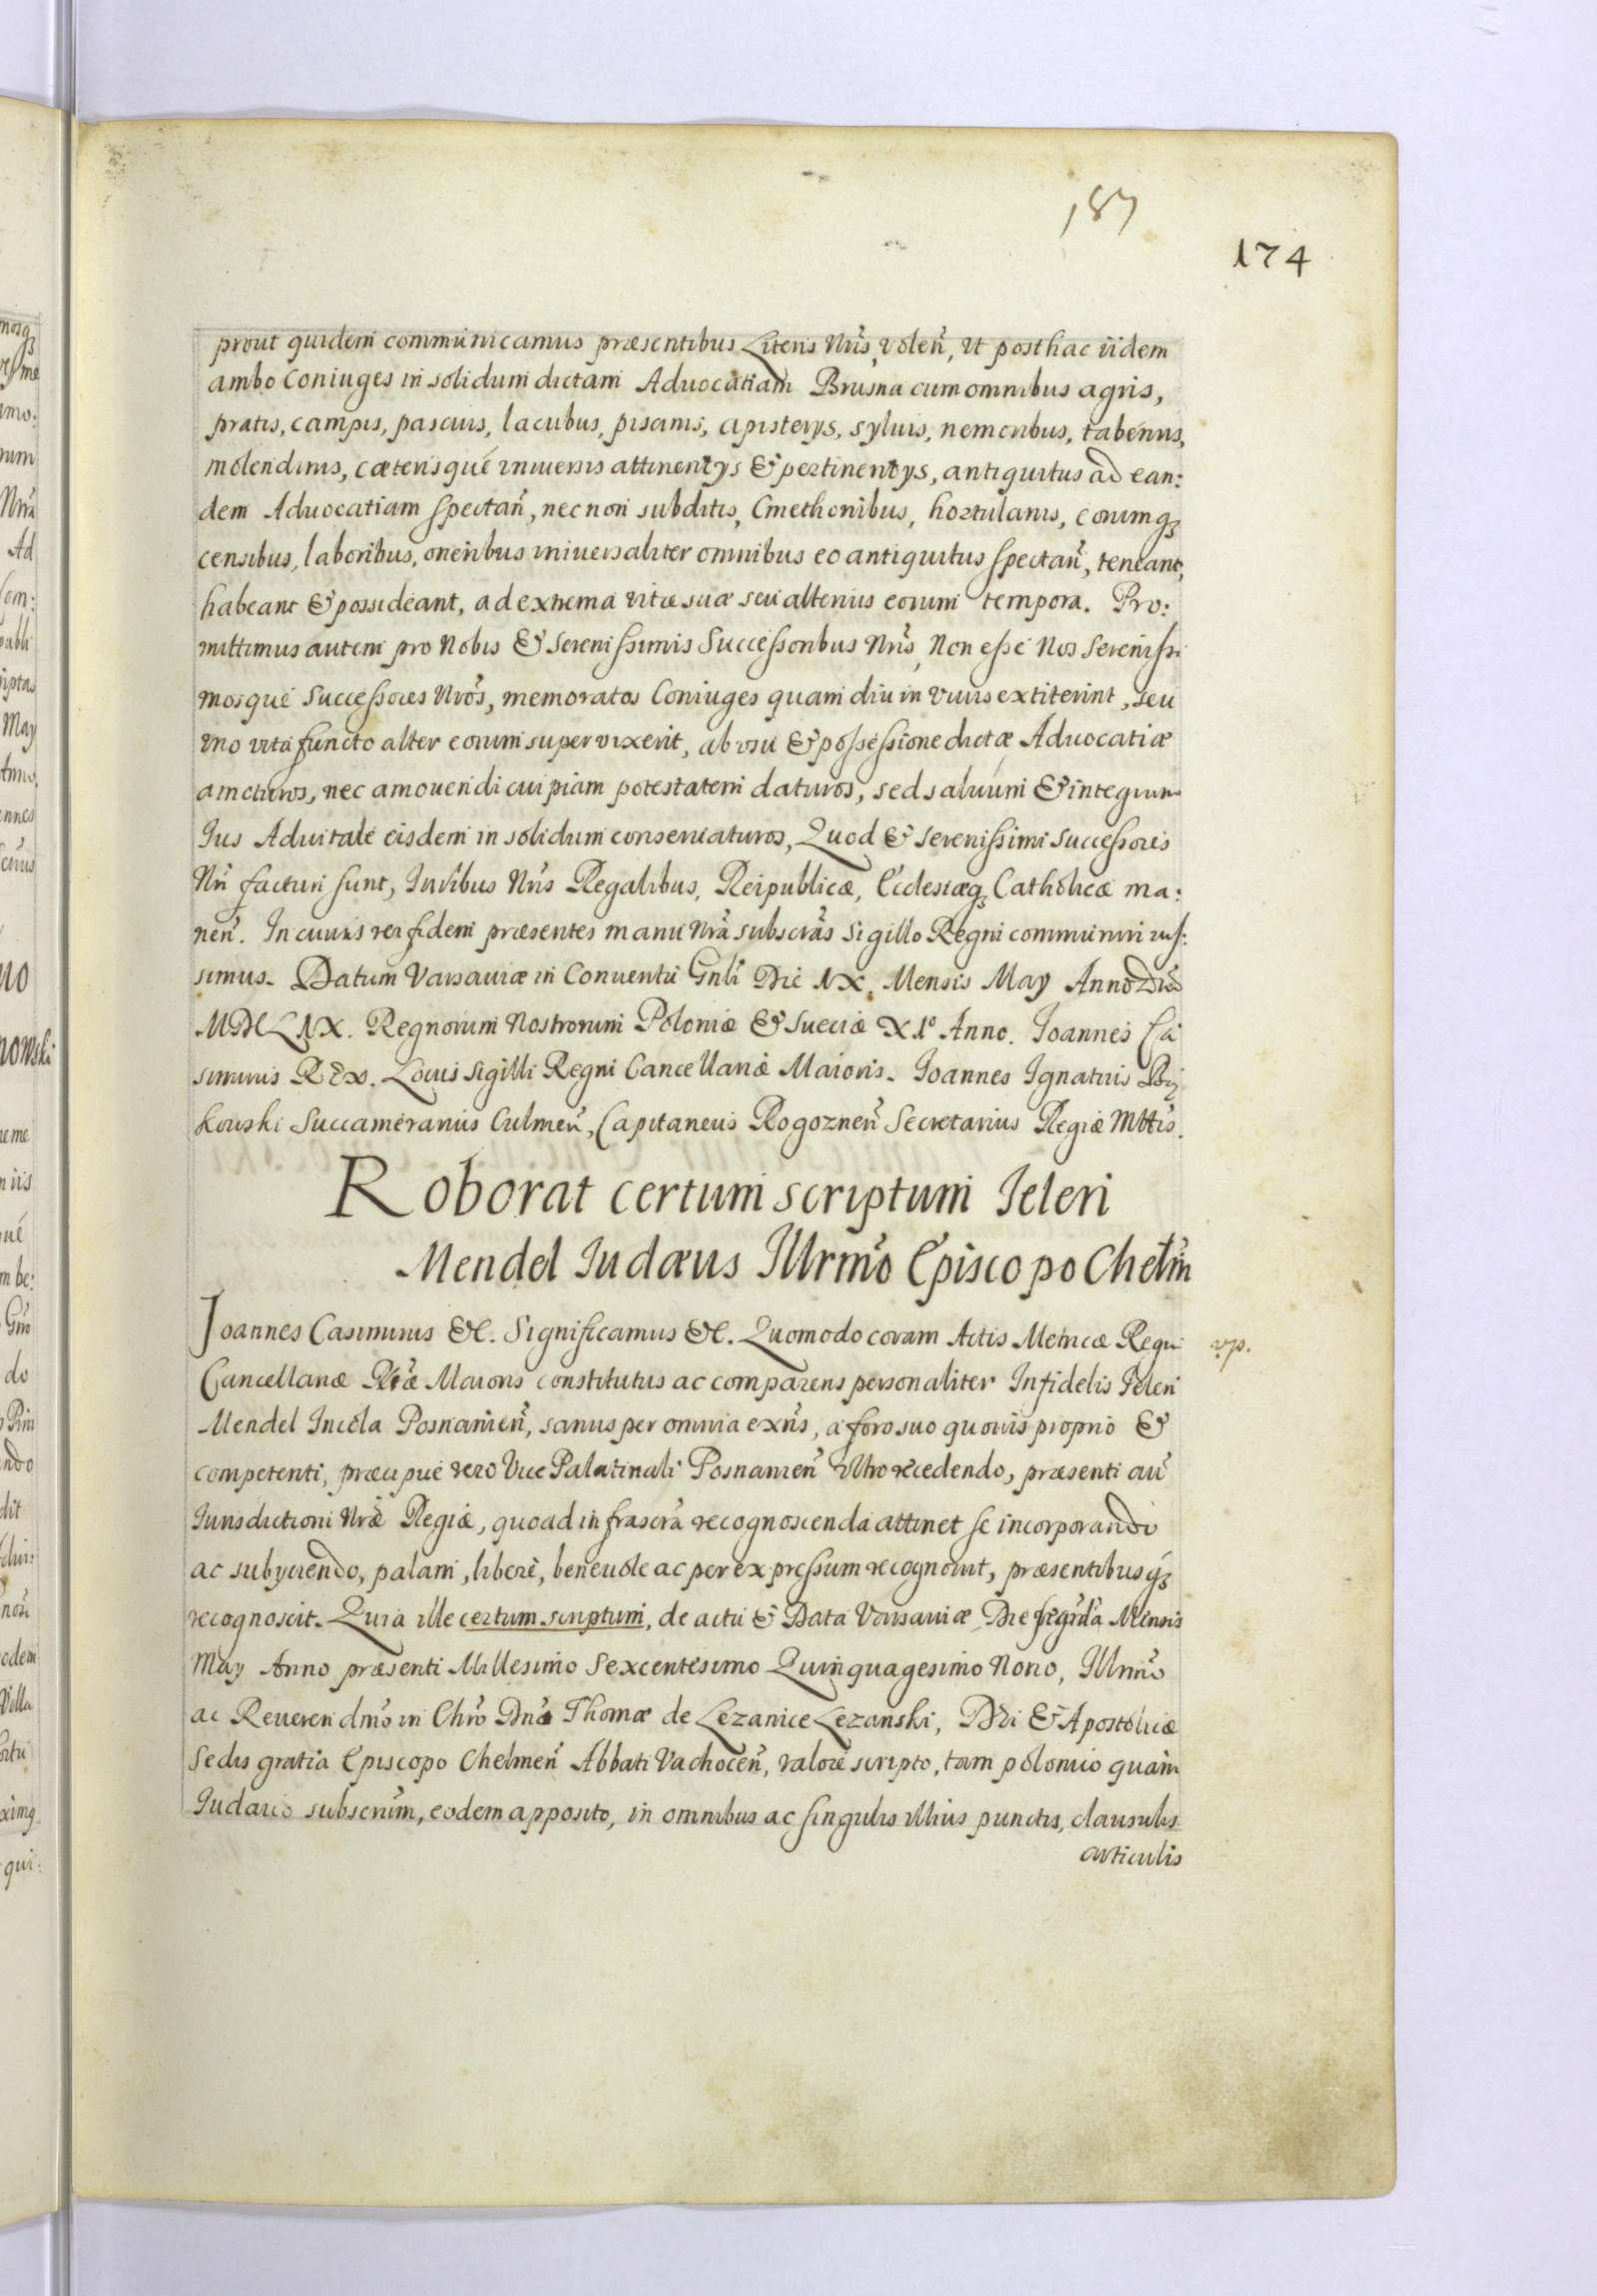 187
174
prout quidem communicamus præsentibus Literis Nr̃is, volen̄, ut posthac iidem
ambo Coniuges in solidum dictam Aduocatiam Brusna cum omnibus agris,
pratis, campis, pascuis, lacubus, piscinis, apisterijs, syluis, nemoribus, tabernis,
molendinis, cæterisque universis attinentijs & pertinentijs, antiquitus ad ean:
dem Aduocatiam spectan̄, nec non subditis, Cmethonibus, hortulanis, eorumq3
censibus, laboribus, oneribus universaliter omnibus eo antiquitus spectan̄, teneant,
habeant & possideant, ad extrema vitæ suæ seu alterius eorum tempora. Pro:
mittimus autem pro Nobis & Serenissimis Successoribus Nr̃is, Non esse Nos Serenissi
mosque Successores Nr̃os, memoratos Coniuges quam diu in viuis extiterint, seu
uno vita functo alter eorum supervixerit, ab usu & possessione dictæ Aduocatiæ
amoturos, nec amouendi cuipiam potestatem daturos, sed saluum & integrum
Ius Aduitale eisdem in solidum conseruaturos, Quod & Serenissimi Successores
Nr̃i facturi sunt, Iuribus Nr̃is Regalibus, Reipublicæ, Ecclesiæq3 Catholicæ ma:
nen̄. In cuius rei fidem præsentes manu Nr̃a subscr̃as Sigillo Regni communiri ius:
simus. Datum Varsauiæ in Conventu Gn̄li Die IX. Mensis May Anno Dñi
MDCLIX. Regnorum Nostrorum Poloniæ & Sueciæ XIº Anno. Joannes Ca
simirus REx. Locus Sigilli Regni Cancellariæ Maioris. Joannes Ignatius Bąj
kowski Succamerarius Culmen̄, Capitaneus Rogoznen̄ Secretarius Regiæ Mttis.
Roborat certum scriptum Jeleri
Mendel Iudæus Illrm̃o Episcopo Chelm̃
Joannes Casimirus &c. Significamus &c. Quomodo coram Actis Metricæ Regni
vp.
Cancellariæ Nr̃æ Maioris constitutus ac comparens personaliter Infidelis Jeleri
Mendel Incola Posnanien̄, sanus per omnia exñs, a foro suo quouis proprio &
competenti, præcipue vero Vice Palatinali Posnanien̄ ultro recedendo, præsenti aũ
Iurisdictioni Nr̃æ Regiæ, quoad infrascr̃a recognoscenda attinet se incorporando
ac subyciendo, palam, libere, beneuole ac per expressum recognouit, præsentibusq3
recognoscit. Quia ille certum scriptum, de actu & Data Varsauiæ Die Mensis
May Anno præsenti Millesimo Sexcentesimo Quinquagesimo Nono, Illrm̃o
ac Reuerendm̃o in Chr̃o Dño Thomæ de Lezanice Lezanski, Dei & Apostolicæ
Sedis gratia Episcopo Chelmen̄ Abbati Vachocen̄, valore scripto, tam polonico quam
Iudaico subscrm̃, eodem apposito, in omnibus ac singulis illius punctis, clausulis
articulis